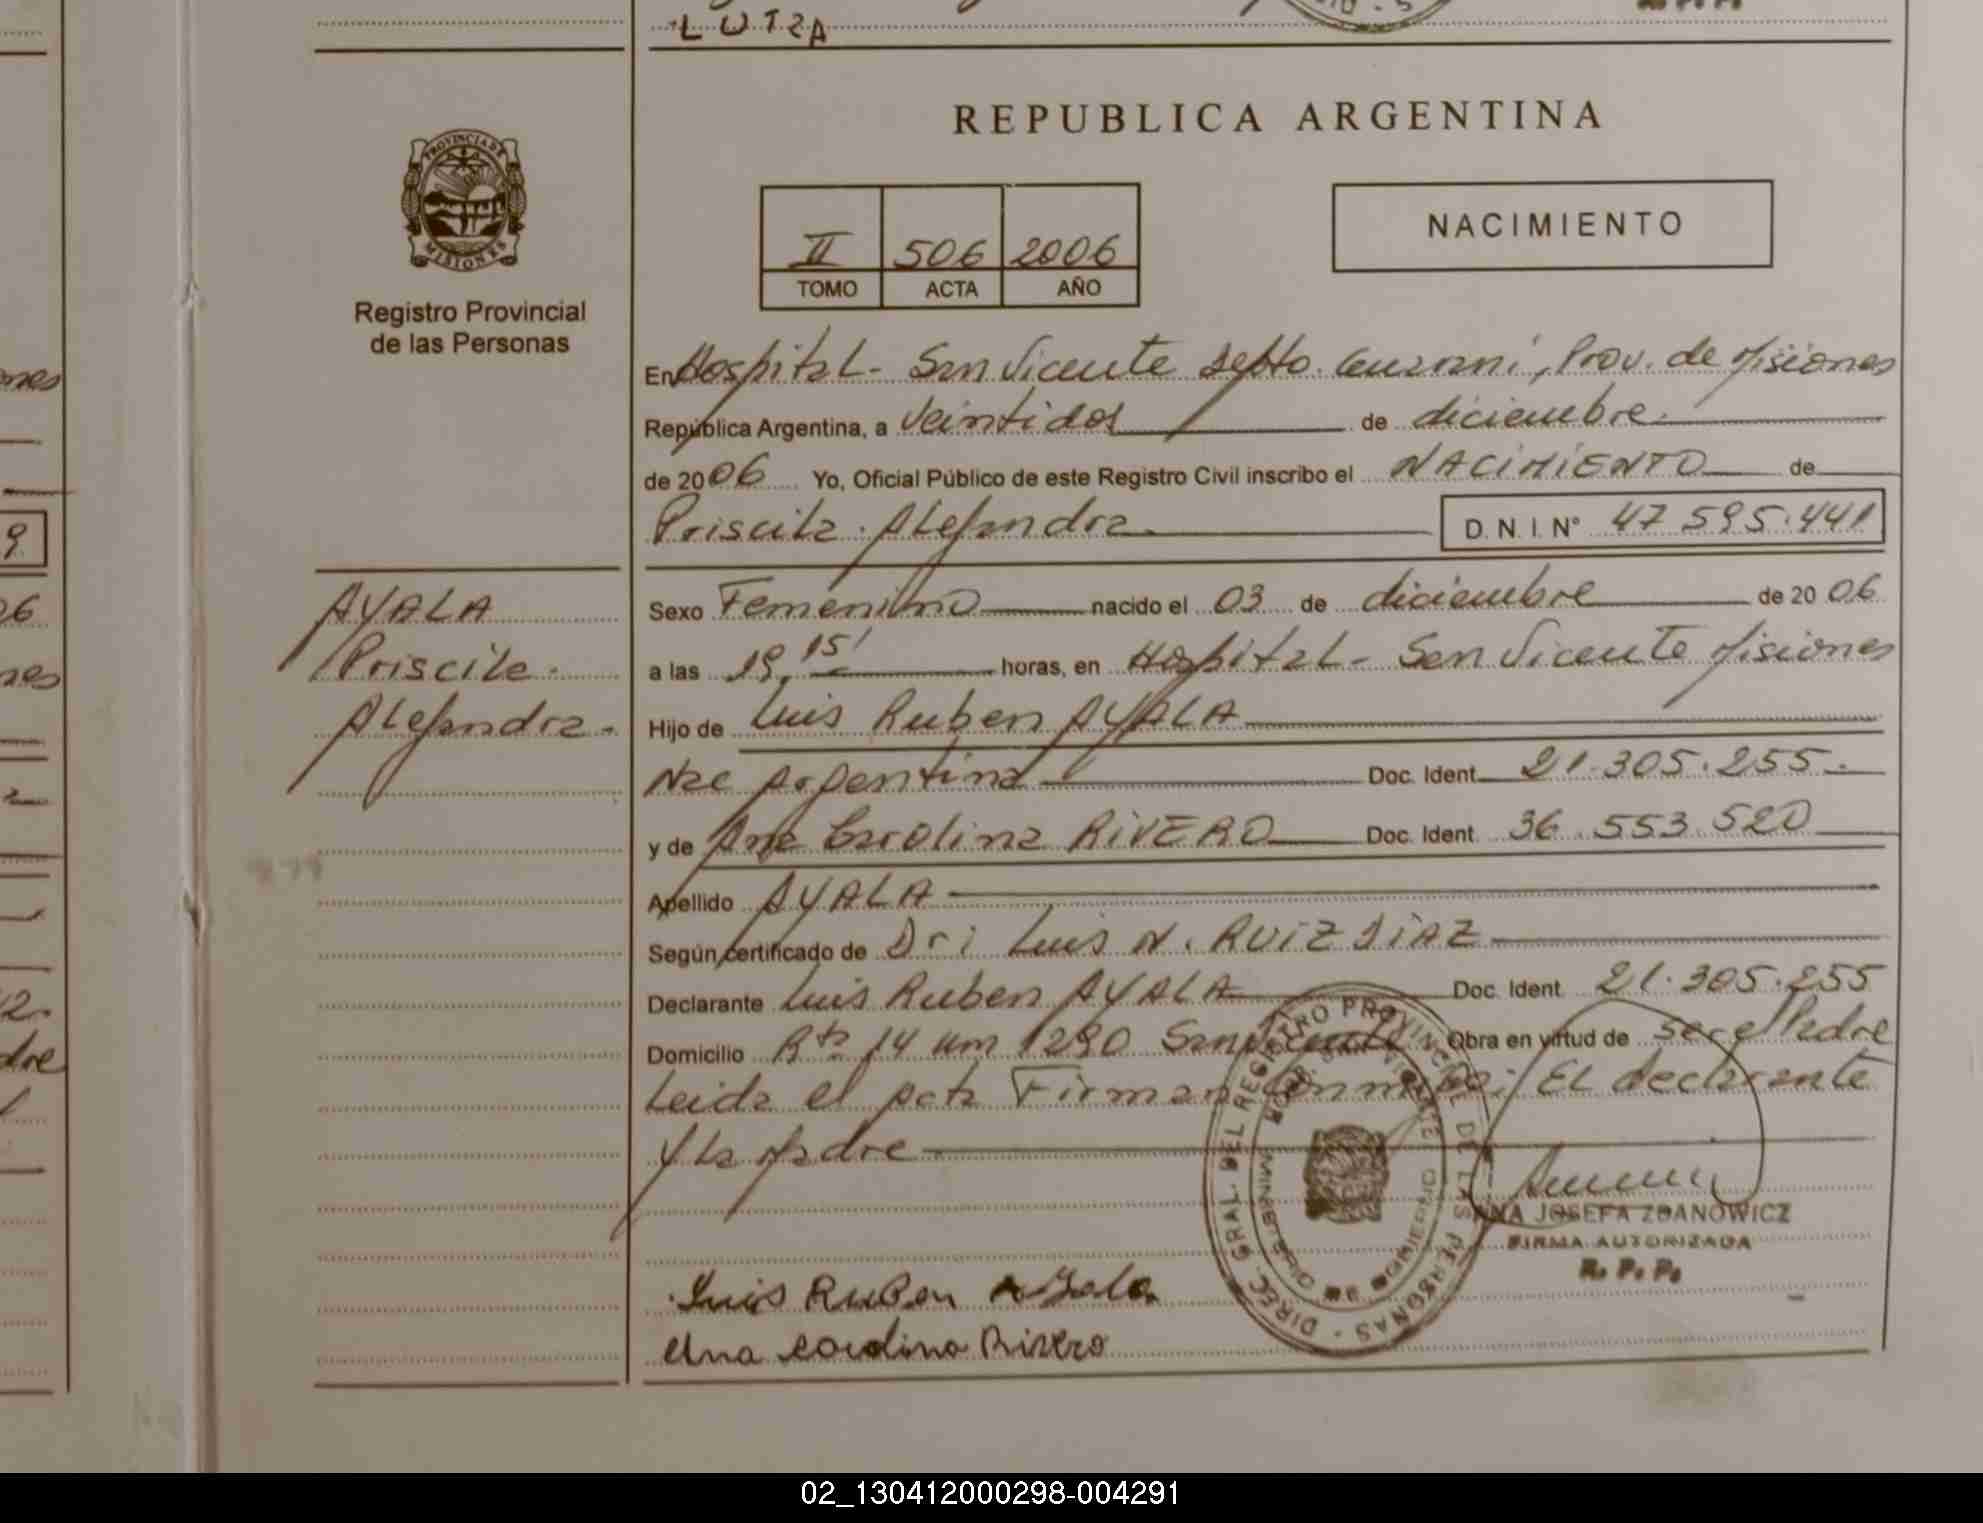 LUTZA
REPUBLICA ARGENTINA
PROVINCIA DE
MISIONES
Registro Provincial
de las Personas
NACIMIENTO
II 506 2006
TOMO ACTA AÑO
En Hospital - San Vicente Depto. Guarani, Prov. de Misiones
República Argentina, a veintidos de diciembre
de 2006 Yo, Oficial Público de este Registro Civil inscribo el NACIMIENTO de
Priscila Alejandra D. N. I. N° 47 595.441
AYALA
Priscila
Alejandra
Sexo Femenino nacido el 03 de diciembre de 2006
a las 19,15' horas, en Hospital - San Vicente Misiones
Hijo de Luis Ruben AYALA
Nac Argentina Doc. Ident. 21.305.255.
y de Ana Carolina RIVERO Doc. Ident. 36.553.520
Apellido AYALA
Según certificado de Dr: Luis N. RUIZ DIAZ
Declarante Luis Ruben AYALA Doc. Ident. 21.305.255
Domicilio Rta 14 Km 1290 San Vicente Obra en virtud de ser el Padre
Leida el Acta Firman conmigo: El declarante
y la Madre
DIREC. GRAL. DEL REGISTRO PROVINCIAL DE LAS PERSONAS
MINISTERIO DE GOBIERNO
ANA JOSEFA ZDANOWICZ
FIRMA AUTORIZADA
R. P. P.
Luis Ruben Ayala
Ana Carolina Rivero
02_130412000298-004291